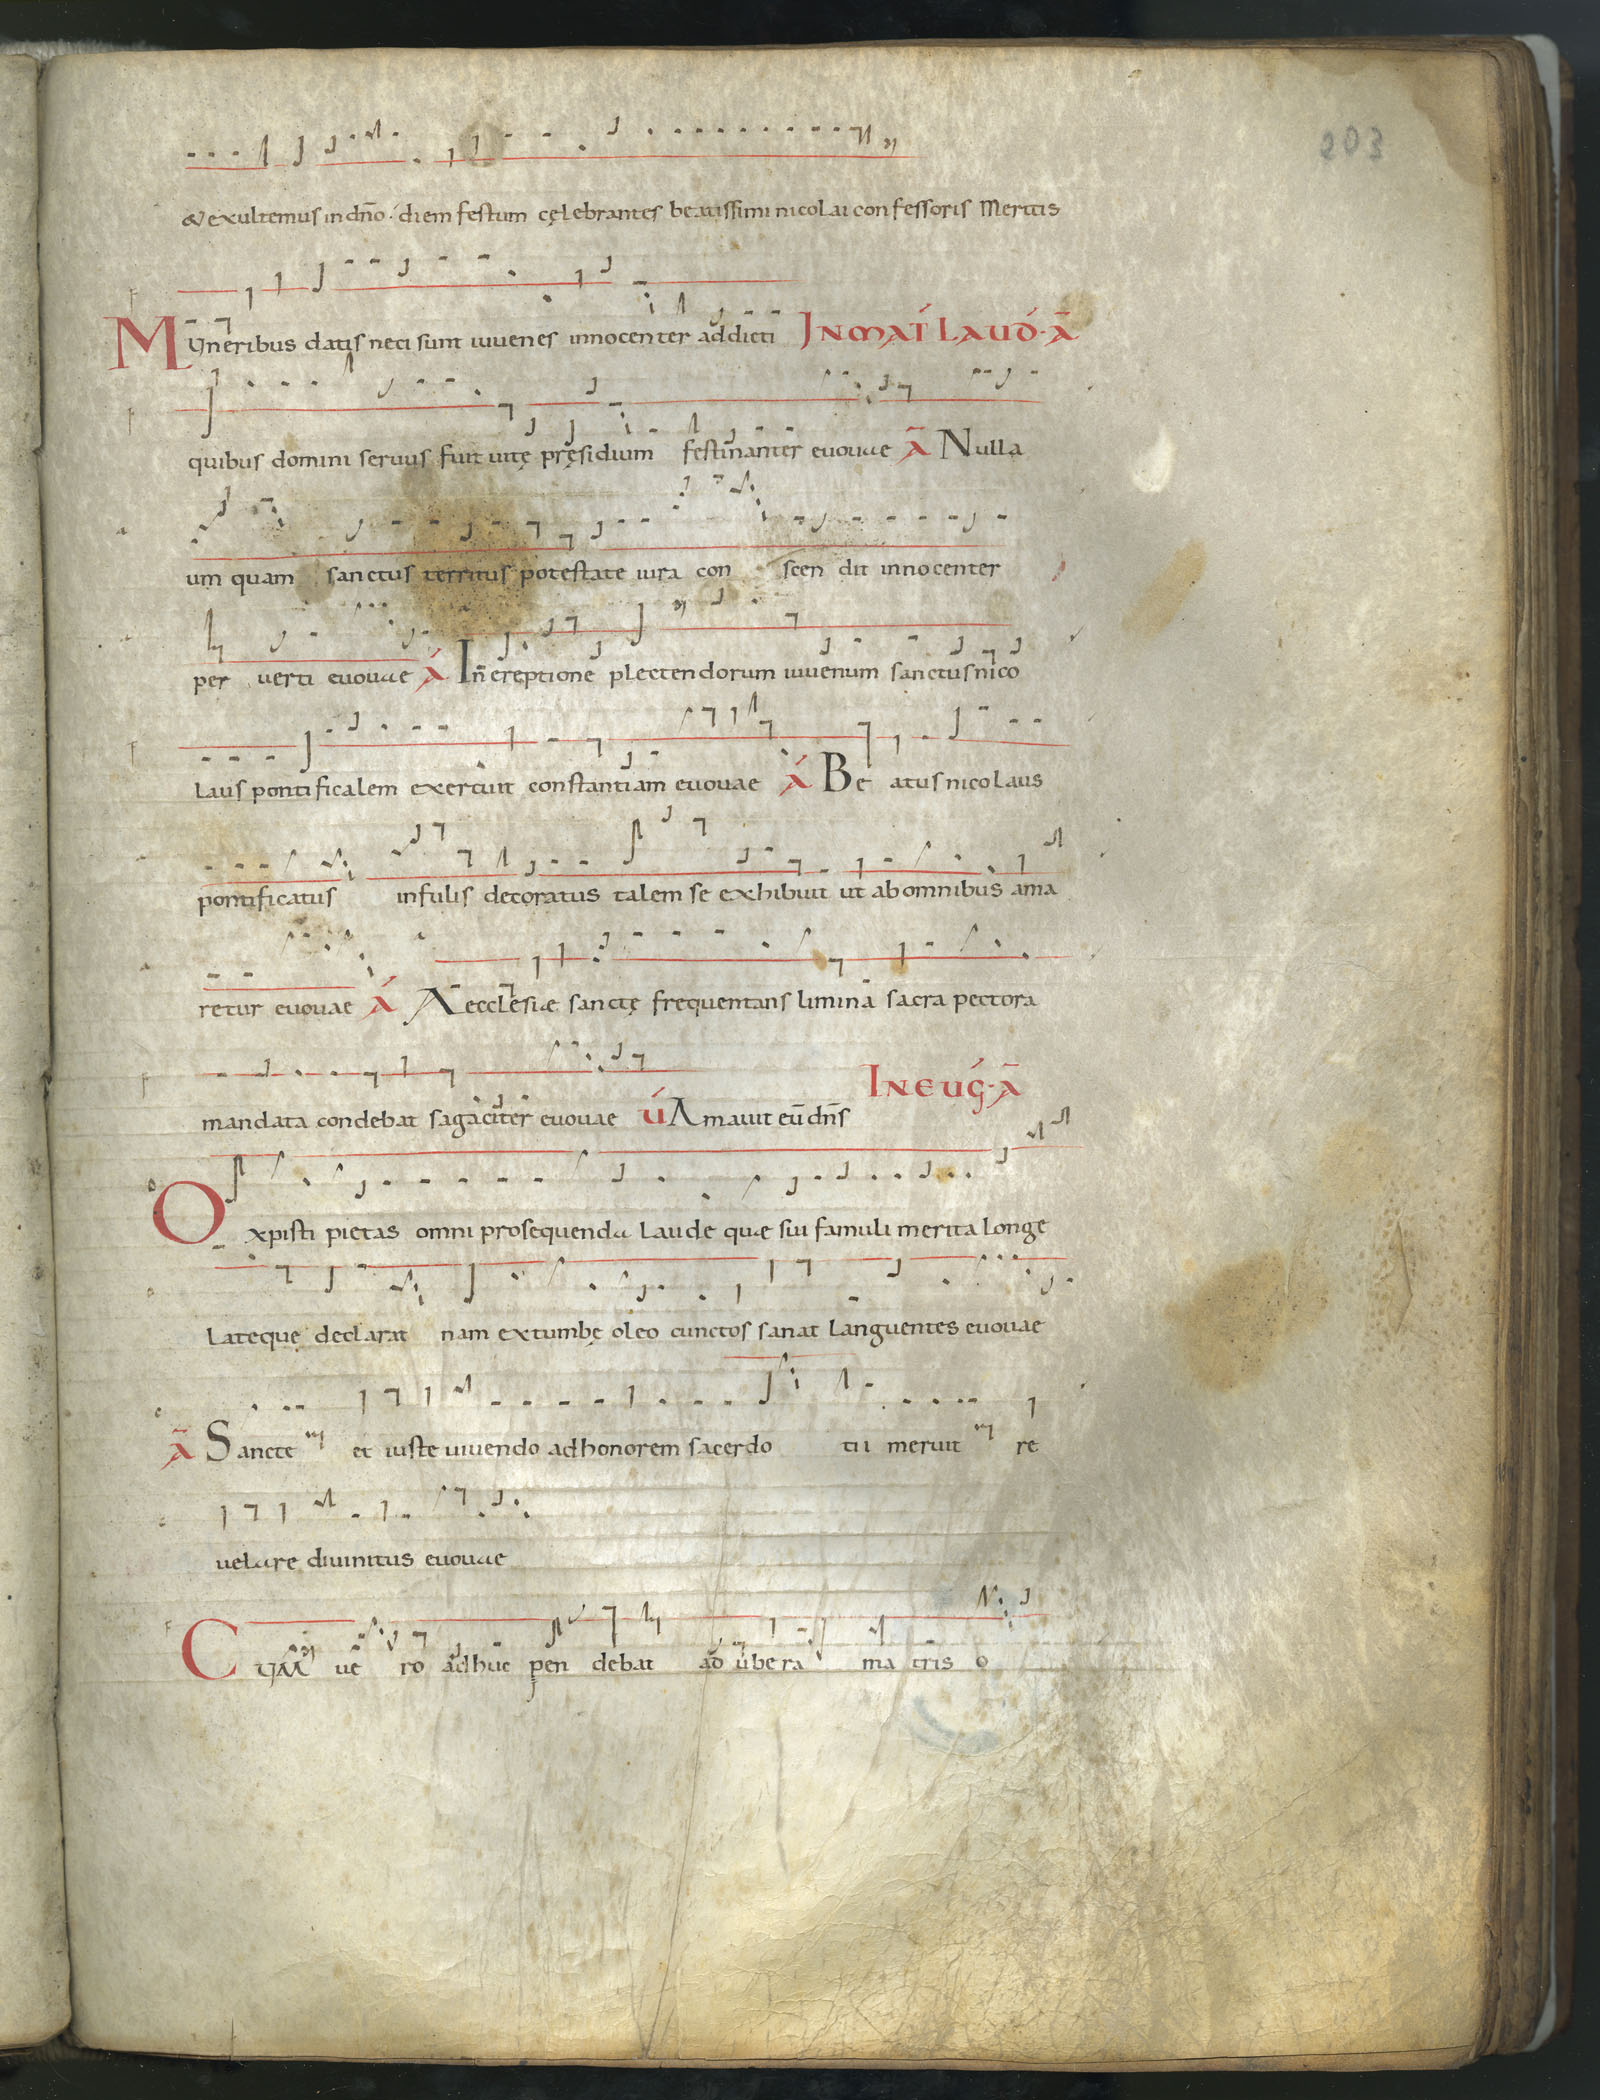 203
& exultemus in dn̄o · diem festum cęlebrantes beatissimi nicolai confessoris Meritis
Muneribus datis neci sunt iuuenes innocenter addicti IN MAT̄ LAUD̄ · Ā
quibus domini seruus fuit uitę pręsidium festinanter euouae Ā Nulla
um quam sanctus territus potestate iura con scen dit innocenter
per uerti euouae Ā In ereptione plectendorum iuuenum sanctus nico
laus pontificalem exercuit constantiam euouae Ā Be atus nicolaus
pontificatus infulis decoratus talem se exhibuit ut ab omnibus ama
retur euouae Ā Aecclesiæ sanctę frequentans limina sacra pectora
mandata condebat sagaciter euouae V́ Amauit eū dn̄s IN EUḠ · Ā
O xpisti pietas omni prosequenda laude quæ sui famuli merita longe
lateque declarat nam ex tumbę oleo cunctos sanat languentes euouae
Ā Sancte et iuste uiuendo ad honorem sacerdo tii meruit re
uelare diuinitus euouae
Cum ue ro adhuc pen debat ad ubera ma tris o